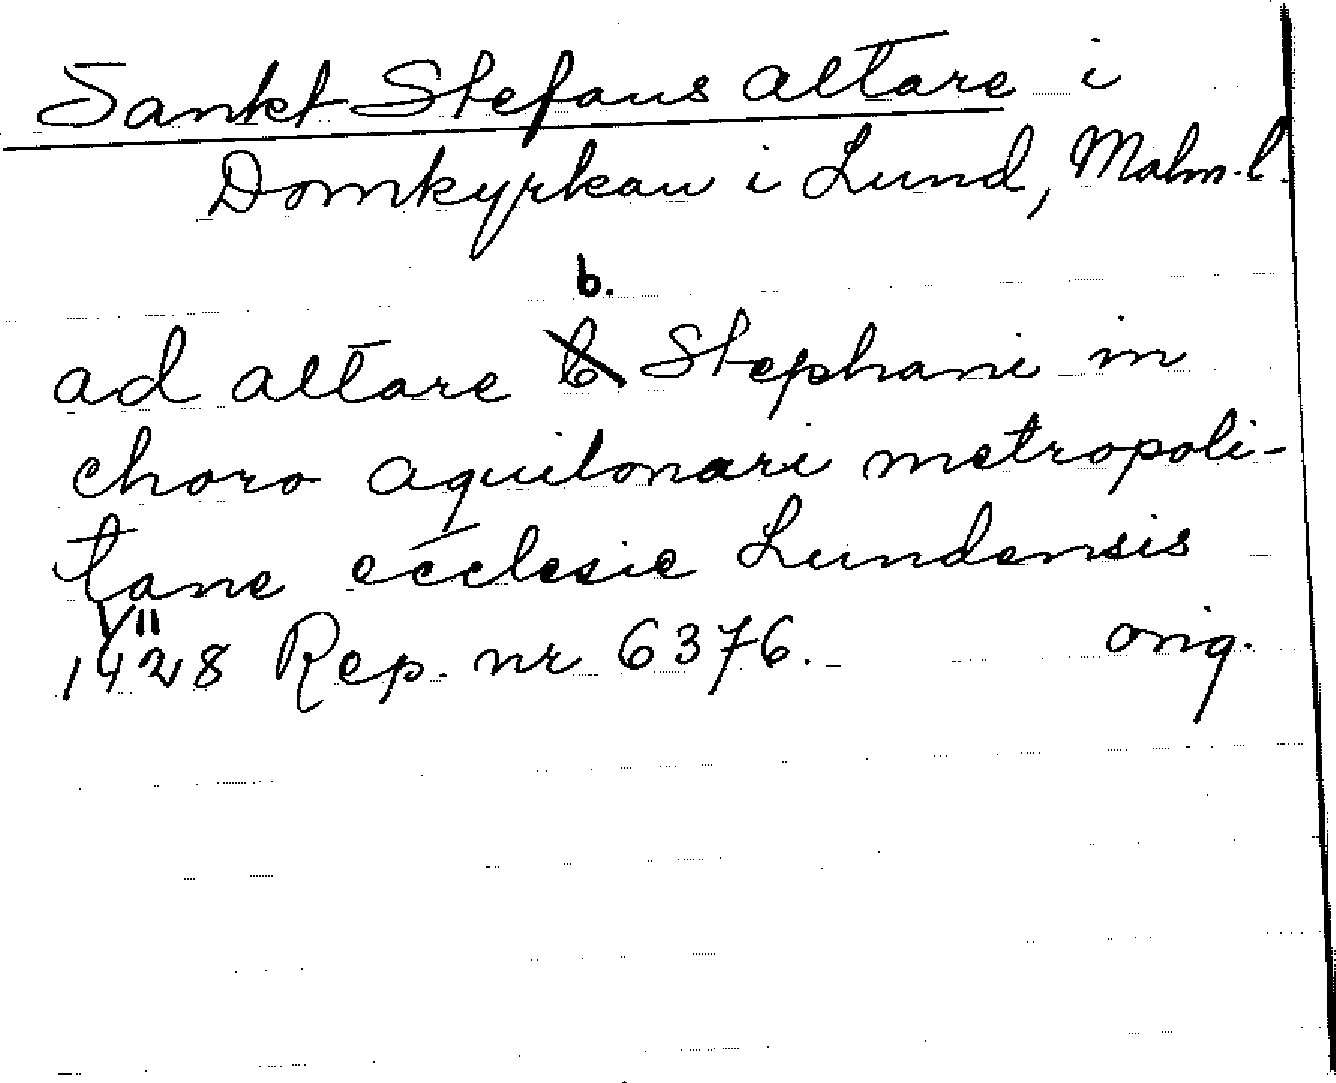 Sankt Stefans altare i
Domkyrkan i Lund, Malm.l.
b.
ad altare Stephani in
choro aquilonari metropoli-
tane ecclesie Lundensis
1428 Rep. nr 6376. orig.